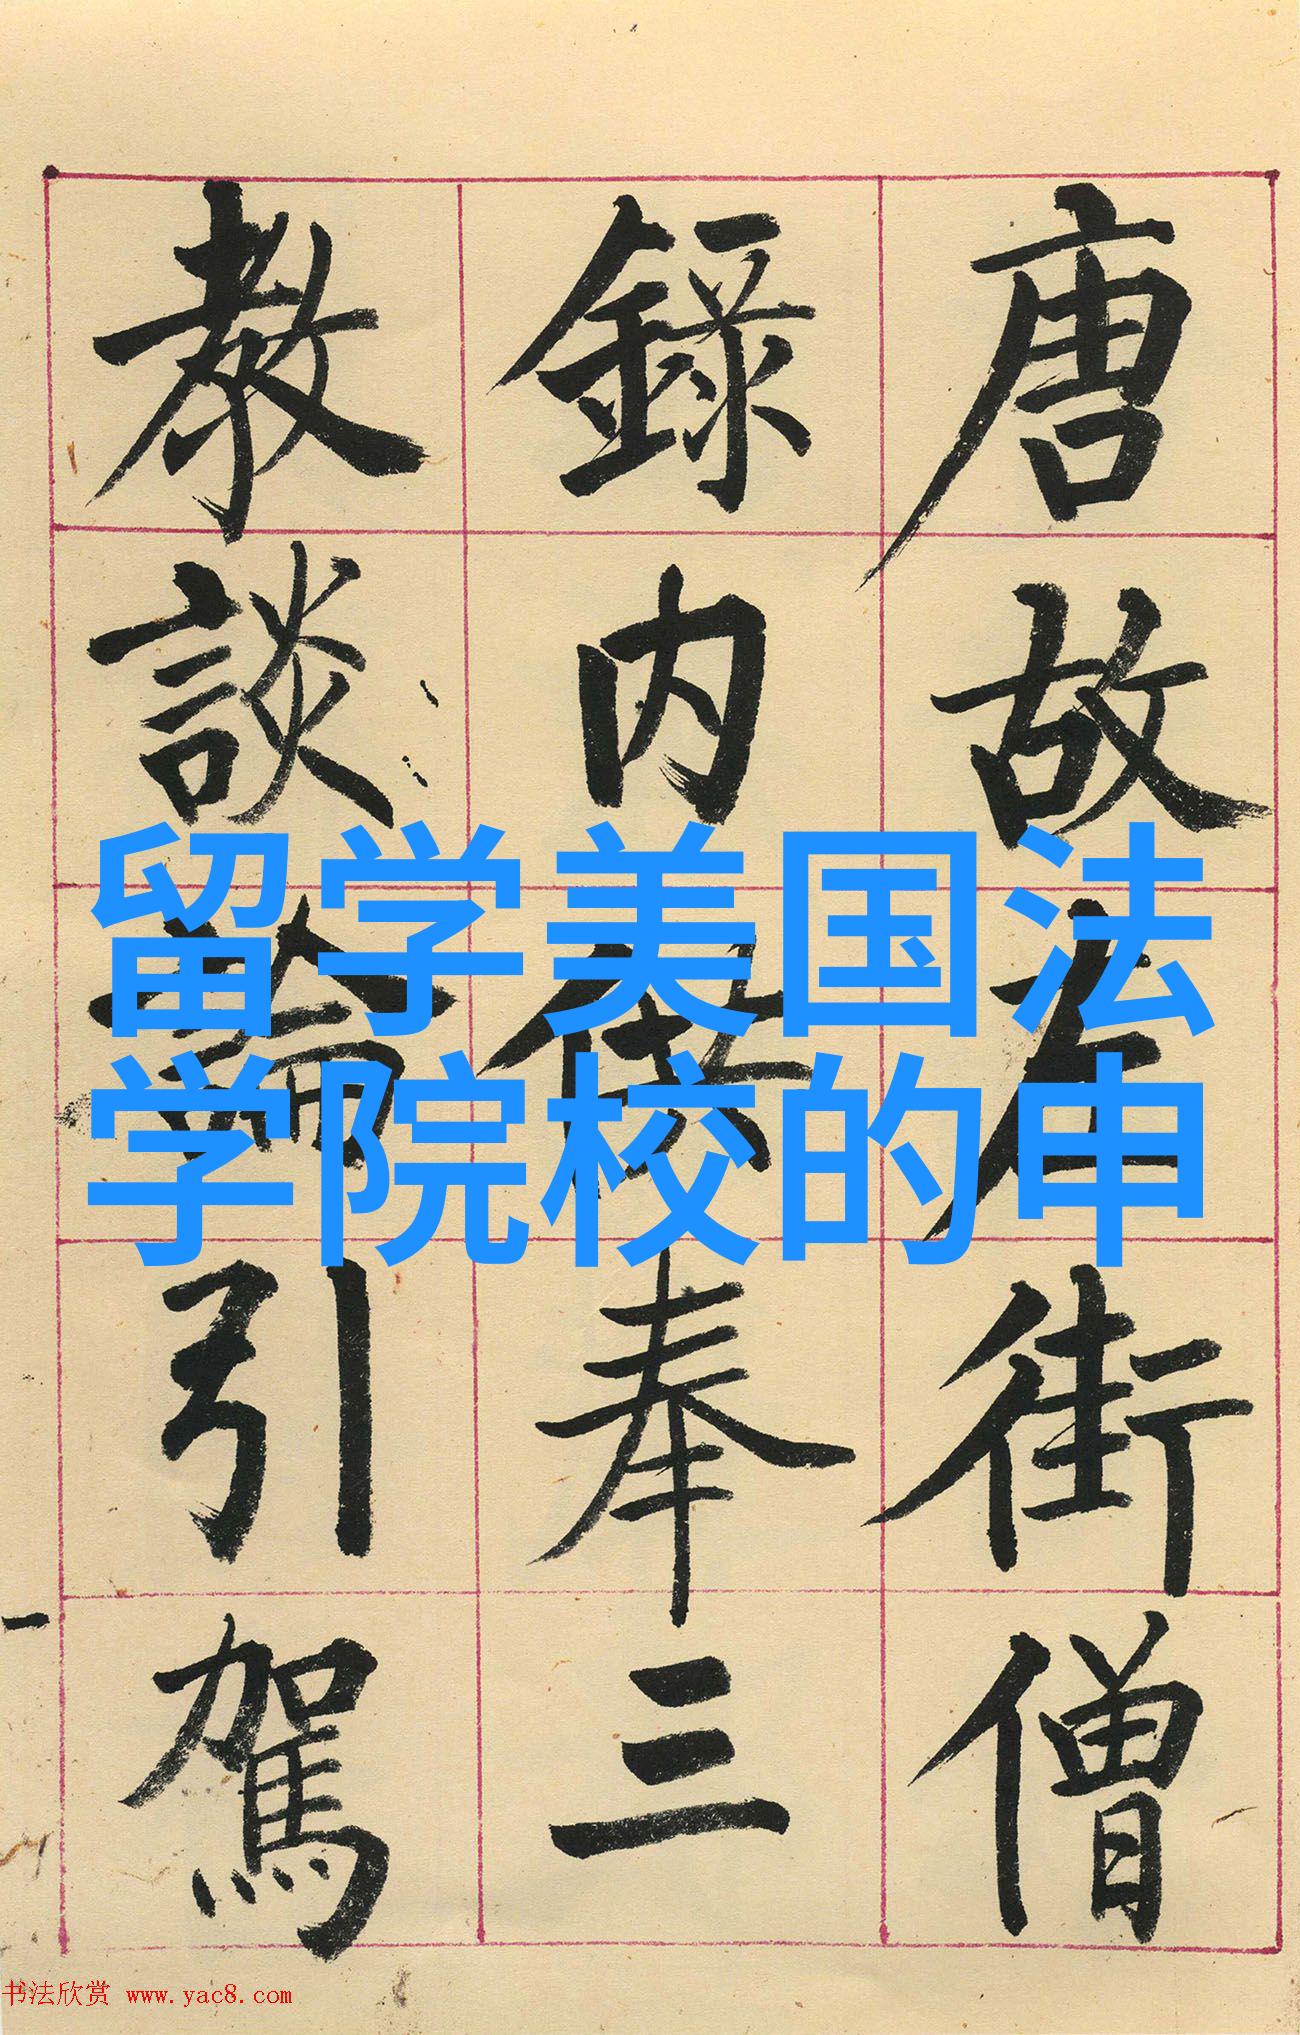 唐故左街僧
錄内供奉三
教談論引駕
留学美国法
学院校的申
书法欣赏 www.yac8.com